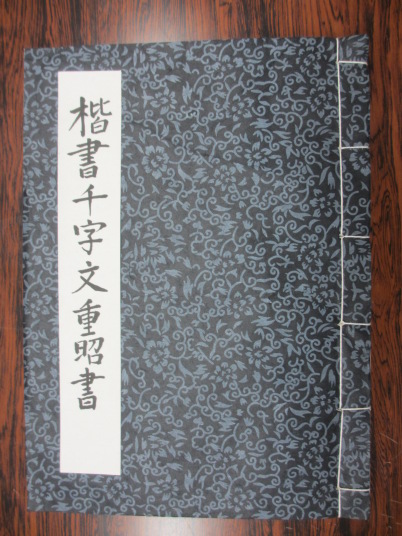 楷書千字文重昭書